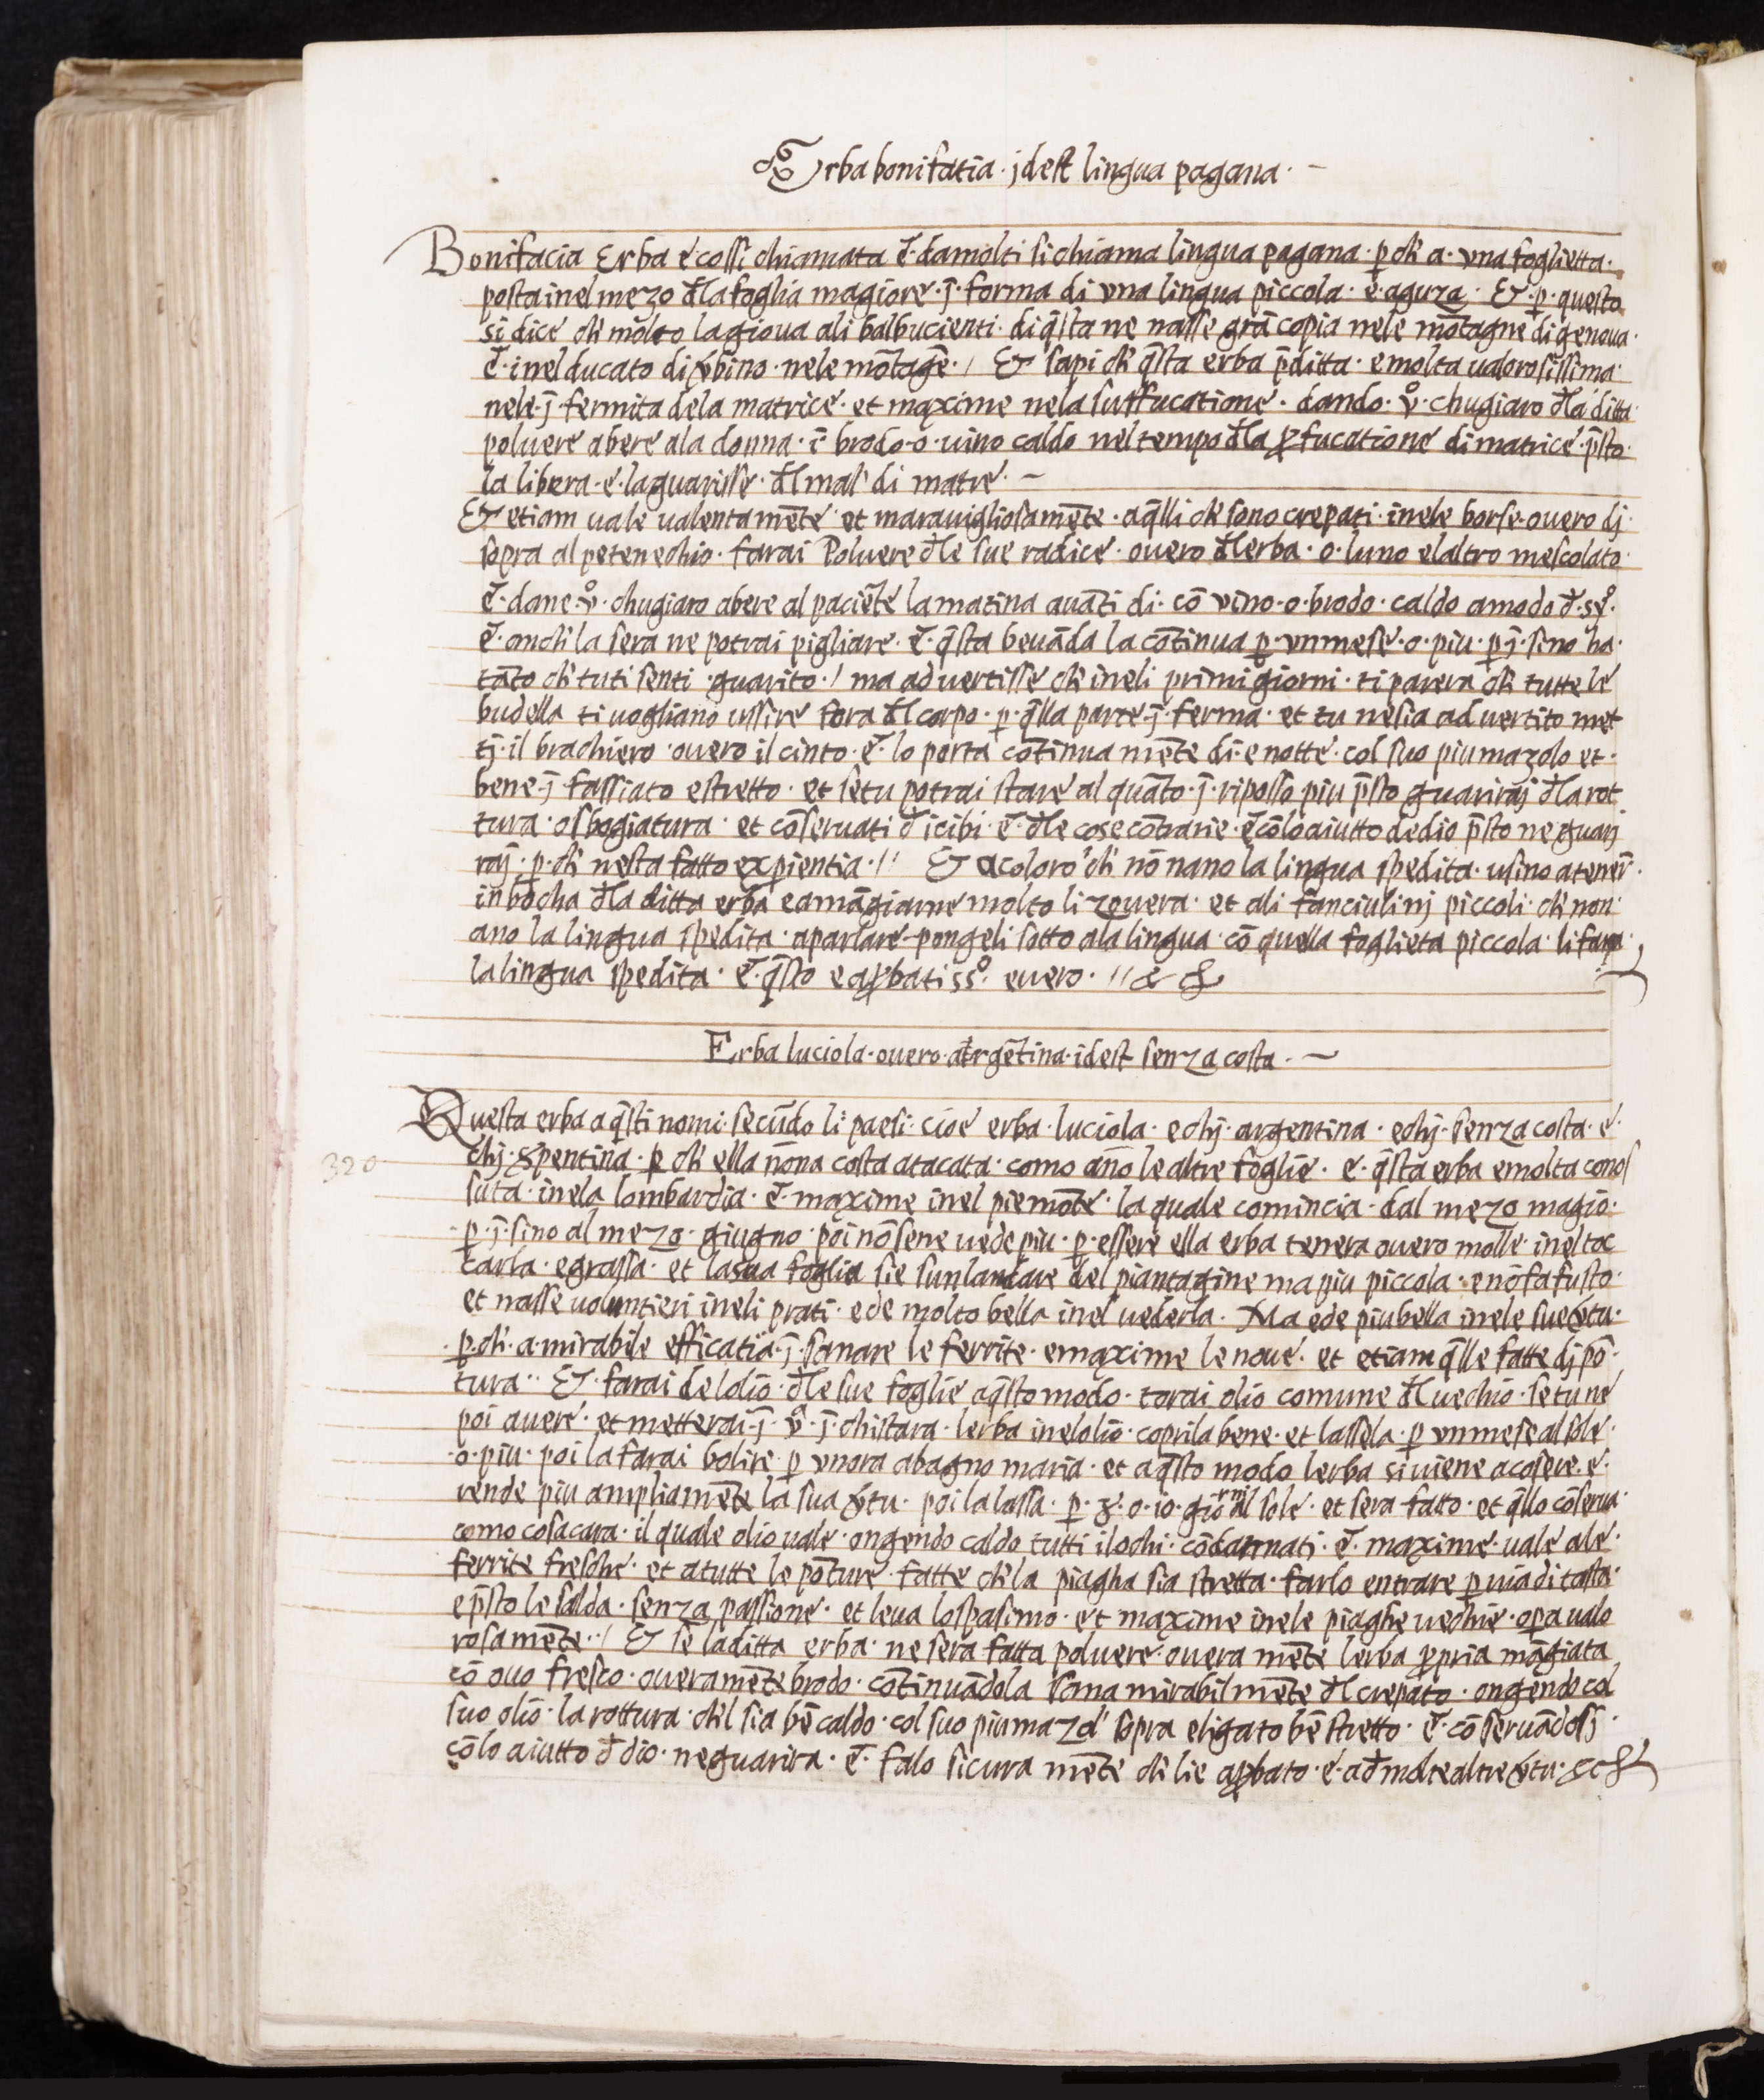 Erba bonifatia · jdest lingua pagana · ~
Bonifacia Erba é cossi chiamata ē · da molti si chiama lingua pagana · p̱ ch' a · vna foglietta ·
posta inel mezo d̄la foglia magiore · j̄ · forma di vna lingua piccola · e · aguza · & · p̱ · questo
si dice ch' molto la gioua ali balbucienti · di q̄sta ne nasse grā copia nele mōtagne di genoua ·
ē · inel ducato di vrbino · nele mōtagē · / & sapi ch' q̄sta erba p̄ditta · e molta ualorosissima
nele · j̄ · fermita dela matrice · et maxime nela suffucatione · dando · v° · chugiaro d̄la ditta
poluere a bere ala donna · ī brodo · o · uino caldo nel tempo d̄la p̱fucatione di matrice · p̄sto ·
la libera · e · la guarisse · d̄l mal' di matre · ~
& etiam uale ualentamēte et marauigliosamēte · a q̄lli ch' sono crepati · inele borse · ouero dj ·
sopra al petenechio · farai Poluere d̄le sue radice · ouero d̄lerba · o · luno e laltro mescolato ·
ē · dane · v° · chugiaro a bere al paciēte la matina auāti di · cō vino · o · brodo · caldo a modo d̄ · sẏ° ·
ē · anch' la sera ne potrai pigliare · ē · q̄sta beuāda la cōtinua p̱ · vn mese · o · piu · p̱ j̄ · sino ha ·
tāto ch' tuti senti · guarito · / ma aduertisse ch' ineli primi giorni · ti parera ch' tutte le
budella ti uogliano ussire fora d̄l corpo · p̱ · q̄lla parte · j̄ · ferma · et tu ne sia aduertito met
tj · il brachiero · ouero il cinto · ē · lo porta cōtinuamēte di · e notte · col suo piumazolo et ·
bene · j̄ · fassiato e stretto · et se tu potrai stare al quāto · j̄ · riposso piu p̄sto guariraj d̄la rot
tura · o sbogiatura · et cōseruati d̄ i cibi · ē · d̄le cose cōtrarie · ē cō lo aiutto de dio p̄sto ne guarj
raj · p̱ · ch' ne sta fatto exp̱ientia · // & a coloro ch' nō nano la lingua spedita · usino a tener̄ ·
in bocha d̄la ditta erba e a māgiarne molto li zouera · et ali fanciulinj piccoli · ch' non ·
ano la lingua spedita · a parlare · pongeli sotto ala lingua · cō quella foglieta piccola · li fara
la lingua spedita · ē · q̄sto e ap̱batiss° · e uero · // & &
Erba luciola · ouero · argētina · idest senza costa · ~
Questa erba a q̄sti nomi · secūdo li paesi · cioé erba · luciola · e chj · argentina · e chj · senza costa · é ·
320
chj · s̱pentina · p̱ ch' ella nō na costa atacata · como āno le altre foglie · e · q̄sta erba e molta conos
suta · inela lombardia · ē · maxime inel piemōte · la quale comincia · dal mezo magio ·
· p̱ · j̄ · sino al mezo · giugno · poi nō se ne uede piu · p̱ · essere ella erba tenera ouero molle · inel toc
carla · e grassa · et la sua foglia sie sunlanciare del piantagine ma piu piccola · e nō fa fusto ·
et nasse uoluntieri ineli prati · ede molto bella inel uederla · Ma ede piu bella inele sue v̄tu ·
· p̱ · ch' · a · mirabile efficatia · j̄ · sanare le ferrite · e maxime le noue · et etiam q̄lle fatte dj pō ·
tura · · & · farai de lolio · d̄le sue foglie a q̄sto modo · torai olio comune d̄l uechio · se tu ne
poi auere · et metterai · j̄ · vª · j̄ · chistara · lerba inelolio · coprila bene · et lassela · p̱ vn mese al sole ·
· o · piu · poi la farai bolire · p̱ vnora a bagno maria · et a q̄sto modo lerba si uiene a cosere · e ·
rende piu ampliamēte la sua v̄tu · poi la lassa · p̱ · 8 · o · 10 · giorni al sole · et sera fatto · et q̄llo cōserua ·
como cosa cara · il quale olio uale · ongendo caldo tutti i lochi · cōdannati · ē · maxime · uale ale ·
ferrite fresche · et a tutte le pōture · fatte ch' la piagha sia stretta · farlo entrare p̱ uia di tasta ·
e p̄sto le salda · senza passione · et leua lo spasimo · et maxime inele piaghe uechie · op̱a ualo
rosamēte · · / & se la ditta erba · ne sera fatta poluere · oueramēte lerba p̱pria māgiata
cō ouo fresco · oueramēte brodo · cōtinuādola sana mirabilmēte d̄l crepato · ongendo col
suo olio · la rottura · ch'l sia bē caldo · col suo piumazol' sopra e ligato bē stretto · ē · cōseruādosj ·
cō lo aiutto d̄ dio · ne guarira · ē · falo sicuramēte ch' lie ap̱bato · e · ad̄ molte altre v̄tu · &c &